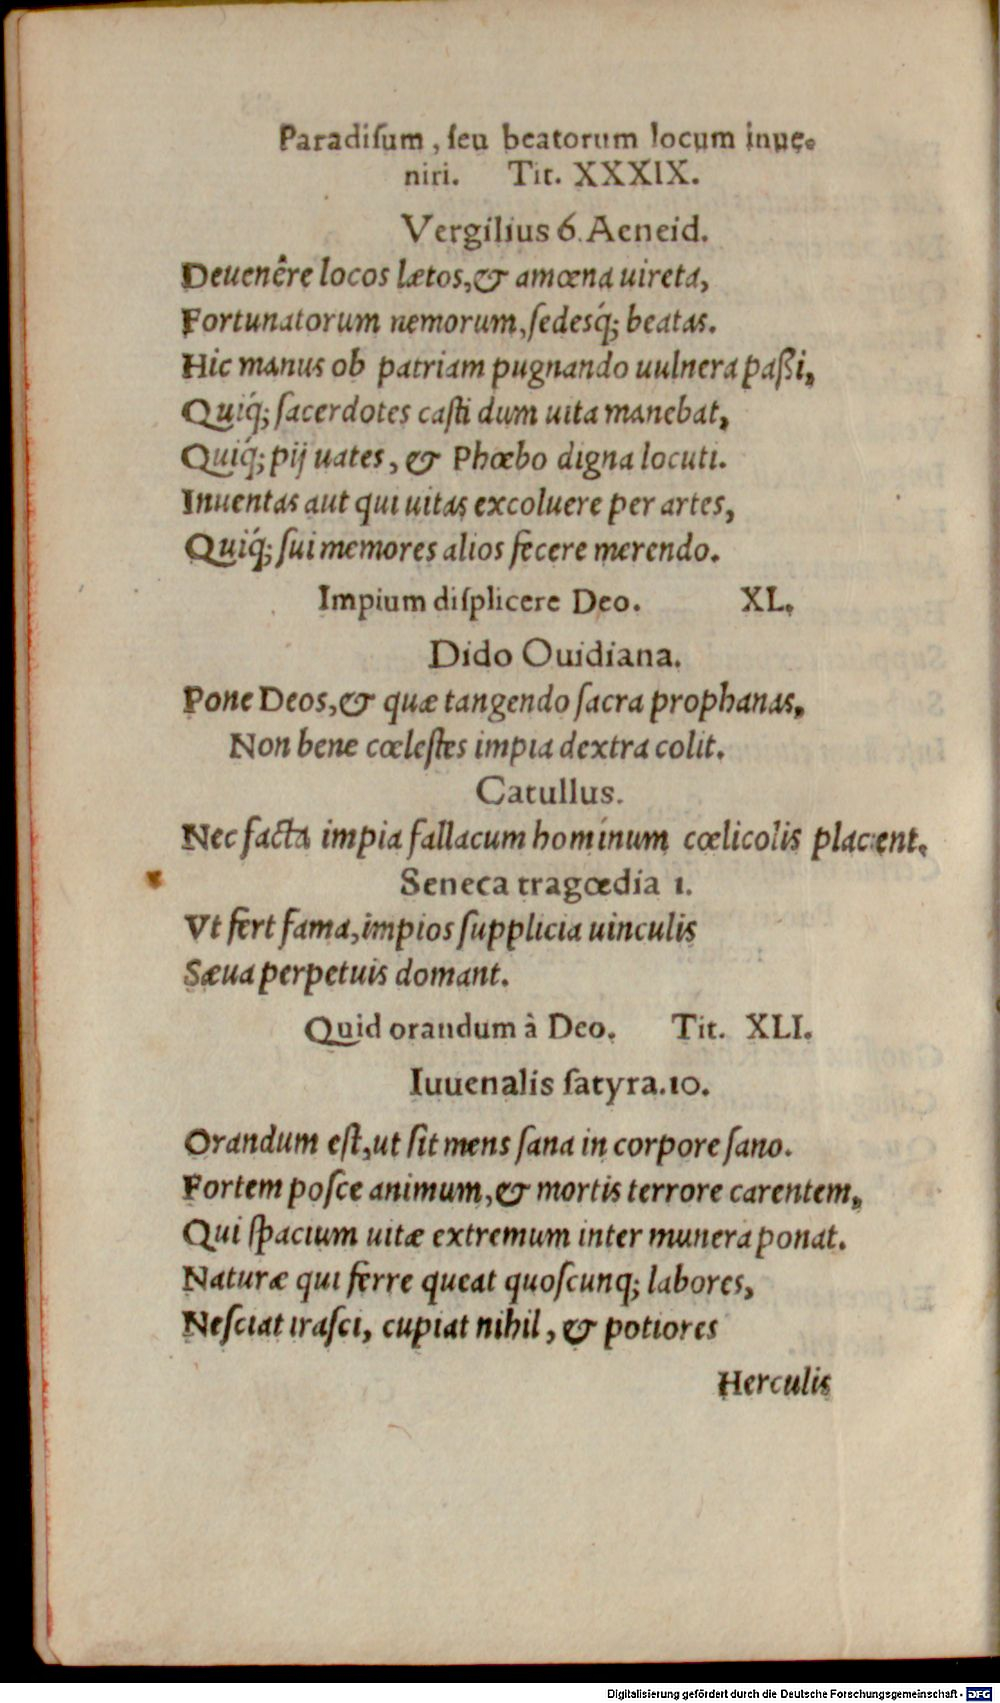 Paradiſum, ſeu beatorum locum inue-
niri. Tit. XXXIX.
Vergilius 6. Aeneid.
Deuenêre locos lætos, & amœna uireta,
Fortunatorum nemorum, ſedesq́; beatas.
Hic manus ob patriam pugnando uulnera paßi,
Quiq́; ſacerdotes caſti dum uita manebat,
Quiq́; pij uates, & Phœbo digna locuti.
Inuentas aut qui uitas excoluere per artes,
Quiq́; ſui memores alios fecere merendo.
Impium diſplicere Deo. XL.
Dido Ouidiana.
Pone Deos, & quæ tangendo ſacra prophanas,
Non bene cœleſtes impia dextra colit.
Catullus.
Nec facta impia fallacum hominum cœlicolis placent.
Seneca tragœdia 1.
Vt fert fama, impios ſupplicia uinculis
Sæua perpetuis domant.
Quid orandum à Deo. Tit. XLI.
Iuuenalis ſatyra. 10.
Orandum eſt, ut ſit mens ſana in corpore ſano.
Fortem poſce animum, & mortis terrore carentem,
Qui ſpacium uitæ extremum inter munera ponat.
Naturæ qui ferre queat quoſcunq; labores,
Neſciat iraſci, cupiat nihil, & potiores
Herculis
Digitalisierung gefördert durch die Deutsche Forschungsgemeinschaft - DFG